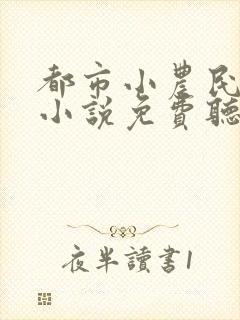 都市小農民
小說免費聽
夜半讀書1